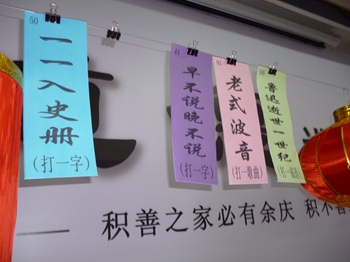 50
一一入史册
(打一字)
早不说晚不说
(打一字)
老式波音
(打一歌曲)
鲁迅逝世一世纪
积善之家必有余庆 积不善